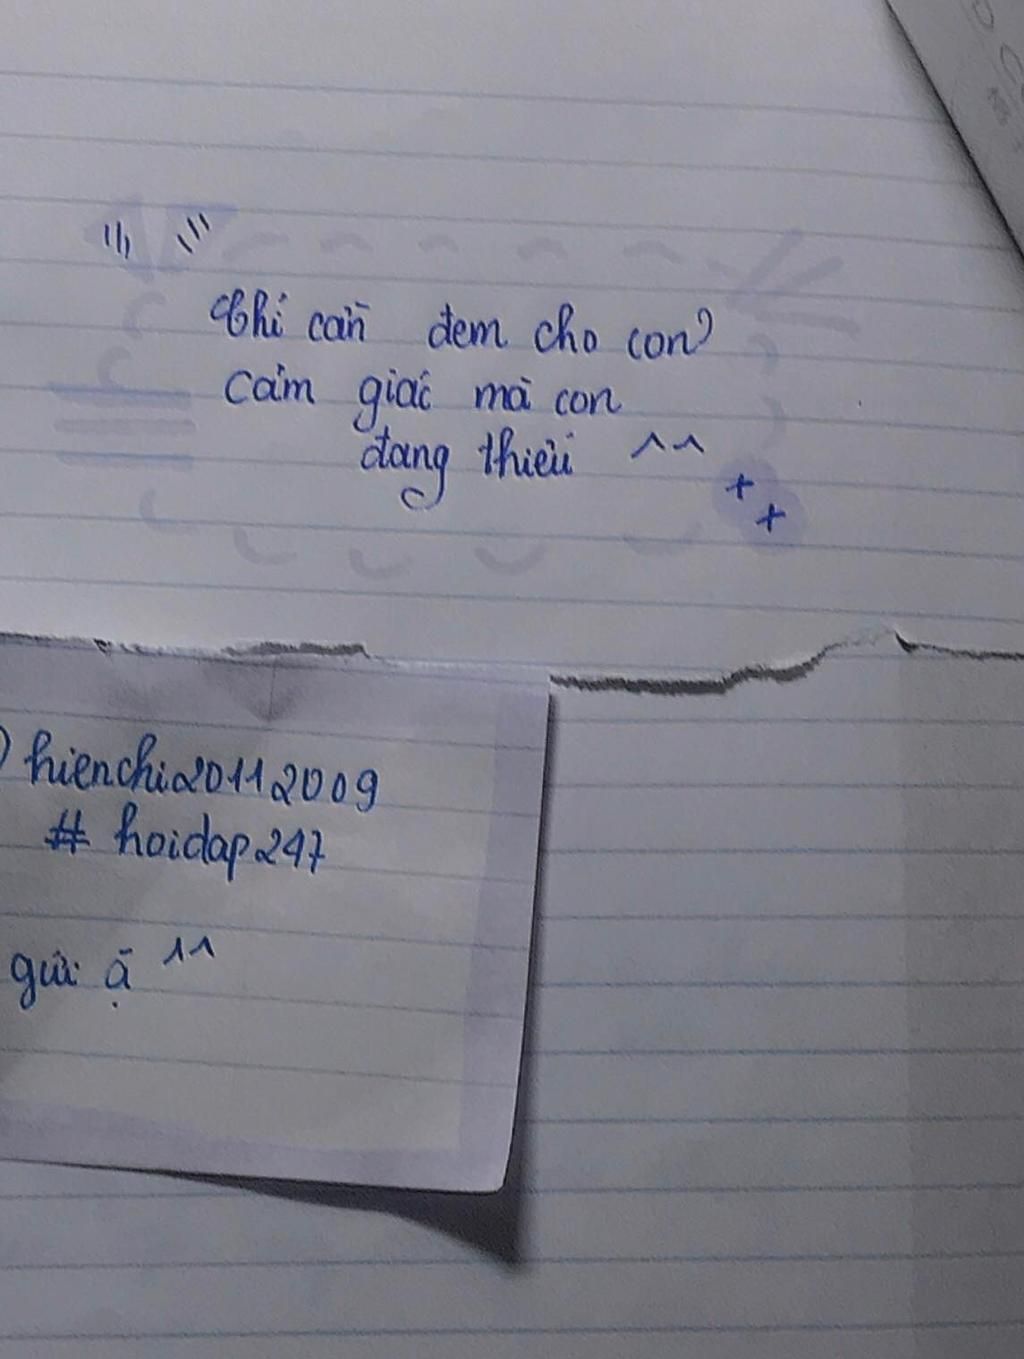 Chỉ cần đem cho con
cảm giác mà con
đang thiếu ^^
++
hienchi20112009
# hoidap247
gửi ạ ^^